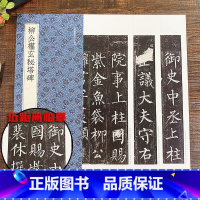 柳公權玄秘塔碑
御史中丞上柱
正議大夫守右
院事上柱國賜
紫金魚袋柳公
近距离临摹
御史中
國賜
裴休撰